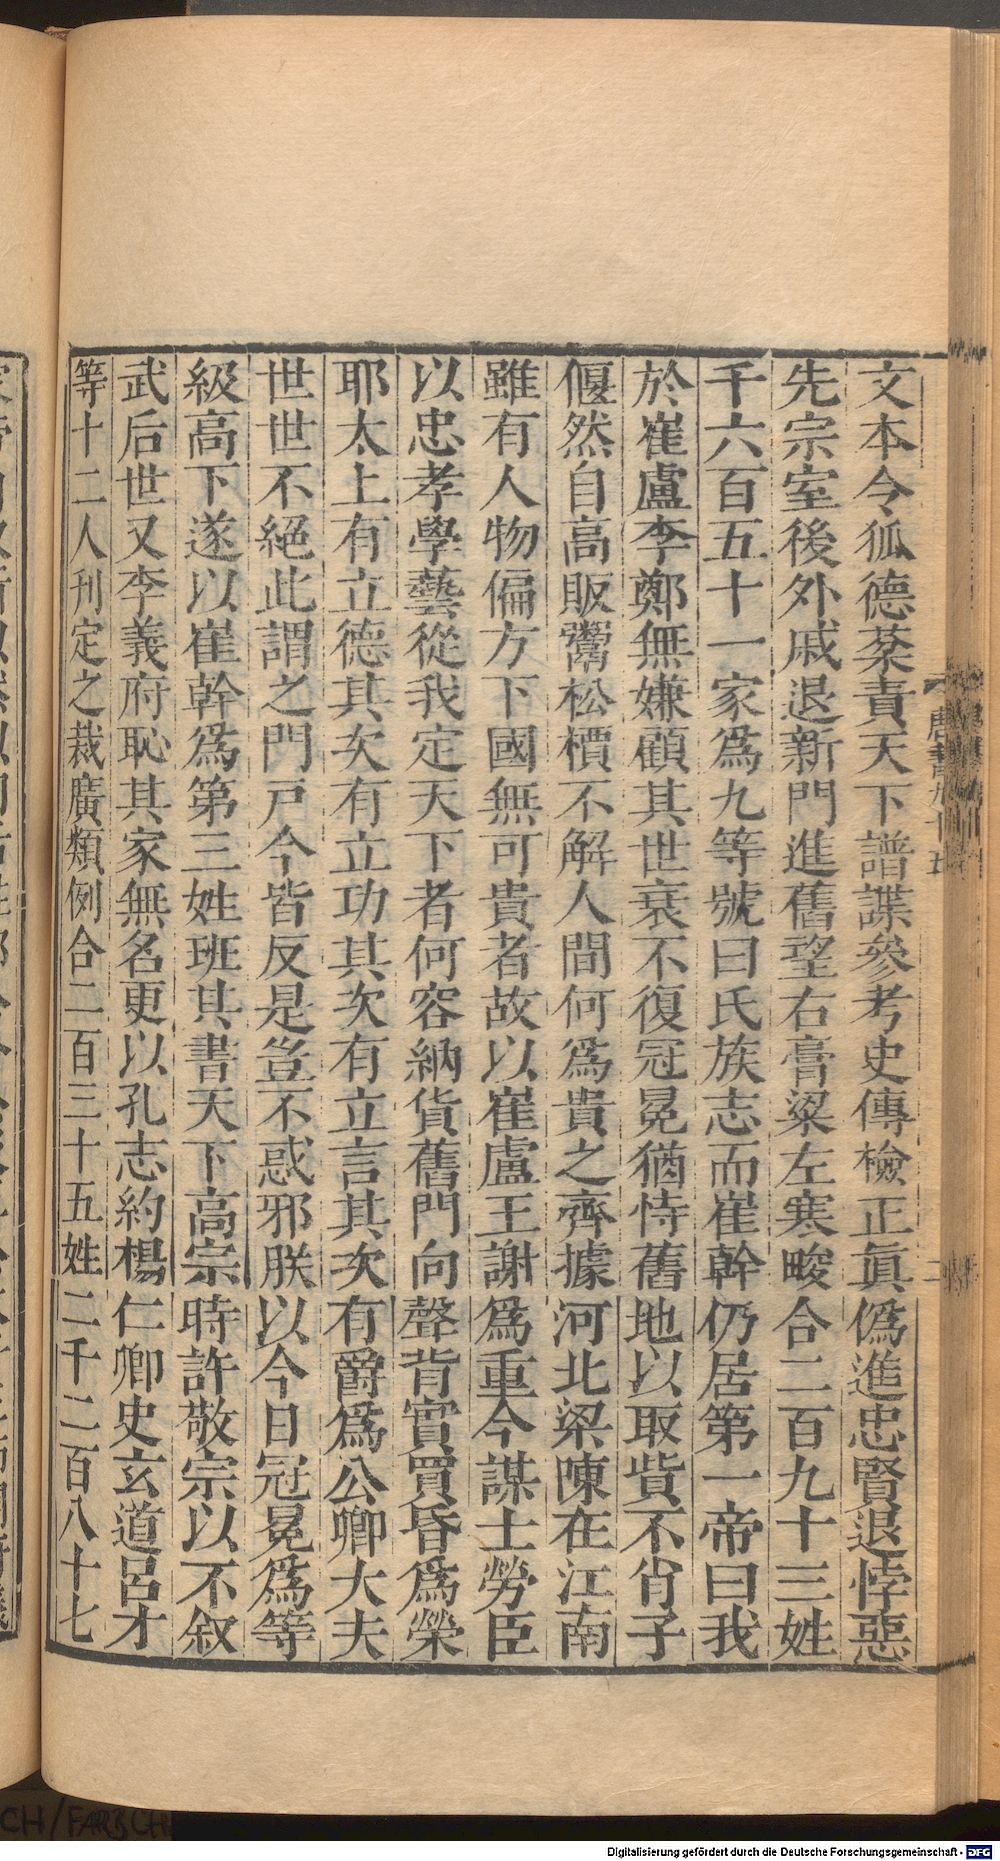 文本令狐德棻責天下譜諜參考史傳檢正眞僞進忠賢退悖惡
先宗室後外戚退新門進舊望右膏粱左寒畯合二百九十三姓
千六百五十一家爲九等號曰氏族志而崔幹仍居第一帝曰我
於崔盧李鄭無嫌顧其世衰不復冠冕猶恃舊地以取貲不肖子
偃然自高販鬻松檟不解人間何爲貴之齊據河北梁陳在江南
雖有人物偏方下國無可貴者故以崔盧王謝爲重今謀士勞臣
以忠孝學藝從我定天下者何容納貨舊門向聲背實買昏爲榮
耶太上有立德其次有立功其次有立言其次有爵爲公卿大夫
世世不絕此謂之門戸今皆反是豈不惑邪朕以今日冠冕爲等
級高下遂以崔幹爲第三姓班其書天下高宗時許敬宗以不叙
武后世又李義府恥其家無名更以孔志約楊仁卿史玄道呂才
等十二人刊定之裁廣類例合二百三十五姓二千二百八十七
Digitalisierung gefördert durch die Deutsche Forschungsgemeinschaft - DFG